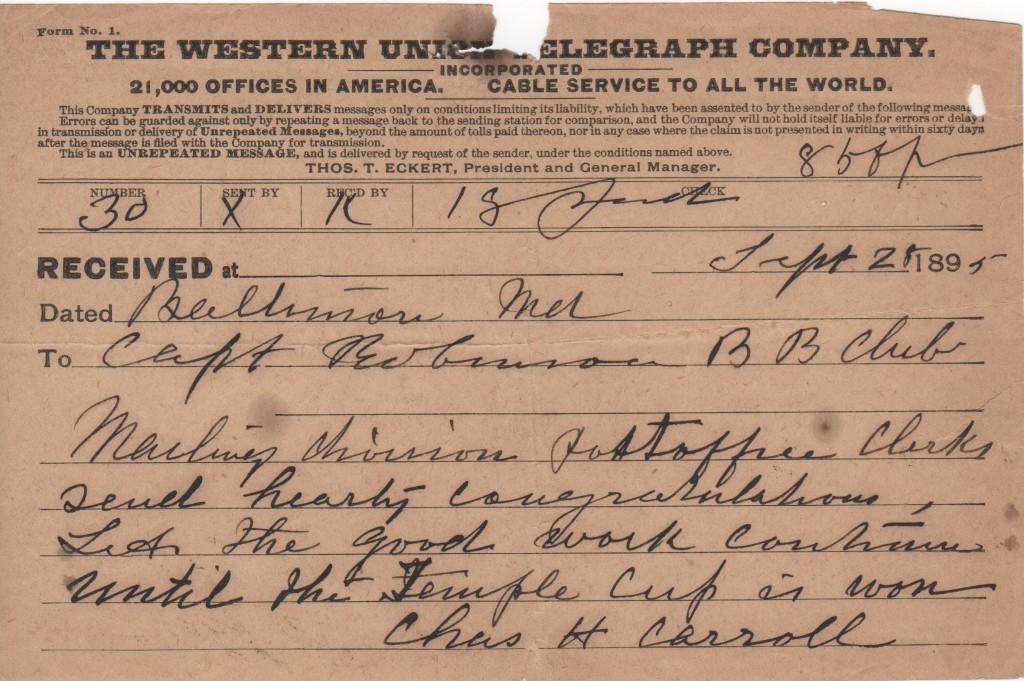 Form No. 1.
THE WESTERN UNION TELEGRAPH COMPANY.
INCORPORATED
21,000 OFFICES IN AMERICA. CABLE SERVICE TO ALL THE WORLD.
This Company TRANSMITS and DELIVERS messages only on conditions limiting its liability, which have been assented to by the sender of the following message
Errors can be guarded against only by repeating a message back to the sending station for comparison, and the Company will not hold itself liable for errors or delays
in transmission or delivery of Unrepeated Messages, beyond the amount of tolls paid thereon, nor in any case where the claim is not presented in writing within sixty days
after the message is filed with the Company for transmission.
This is an UNREPEATED MESSAGE, and is delivered by request of the sender, under the conditions named above.
THOS. T. ECKERT, President and General Manager.
858p
NUMBER SENT BY REC'D BY CHECK
30 X K 18
RECEIVED at Sept 28 1895
Dated Baltimore Md
To Capt Robinson B B Club
Mailing division Postoffice Clerks
send hearty congratulations,
Let the good work continue
until the Temple Cup is won
Chas H Carroll